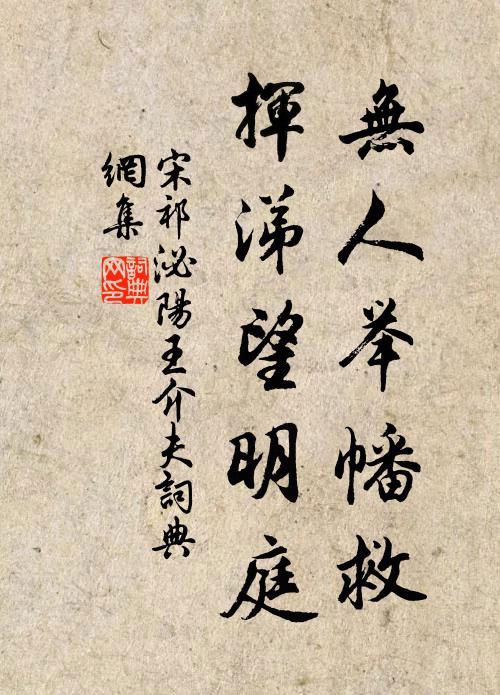 無人举幡救
揮涕望明庭
宋祁泌陽王介夫詞典
網集
詞典
网印